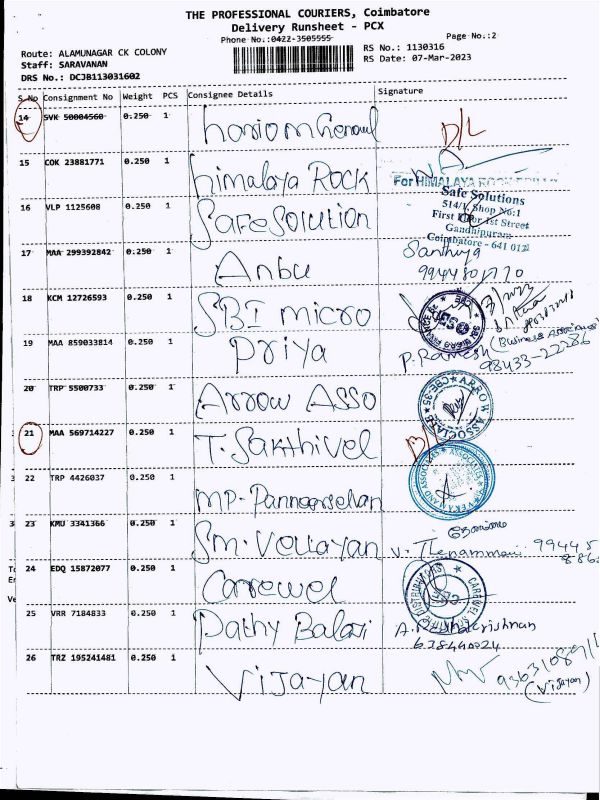 THE PROFESSIONAL COURIERS, Coimbatore
Delivery Runsheet - PCX
Phone No.:0422-3505555
Page No.:2
Route: ALAMUNAGAR CK COLONY
RS No.: 1130316
Staff: SARAVANAN
RS Date: 07-Mar-2023
DRS No.: DCJB113031602
S.No Consignment No Weight PCS Consignee Details Signature
14 SVK 50004560 0.250 1 D/L
15 COK 23881771 0.250 1 himalaya Rock
For HIMALAYA ROCK
16 VLP 1125608 0.250 1 Safe Solution
Safe Solutions
514/1, Shop No:1
First Floor 1st Street
Gandhipuram
Coimbatore - 641 012
17 MAA 299392842 0.250 1 Anbu Santhiya
18 KCM 12726593 0.250 1 SBI micro
19 MAA 859033814 0.250 1 Priya P. Ramesh (Business Associates)
98433-22286
20 TRP 5500733 0.250 1 Arrow Asso
ARROW ASSOCIATES CBE-35
21 MAA 569714227 0.250 1 T. Sakthivel
22 TRP 4426037 0.250 1 MP. Panneerselvan
23 KMU 3341366 0.250 1 Sm. Vellayan V. Thenammai 99445
24 EDQ 15872077 0.250 1 Carewel
25 VRR 7184833 0.250 1 Pathy Balaji
638440024
26 TRZ 195241481 0.250 1 Vijayan
(Vijayan)